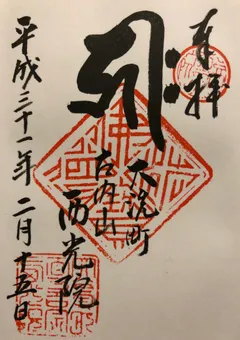 奉拝
大洗町
古内山
西光院
平成三十一年 二月十五日